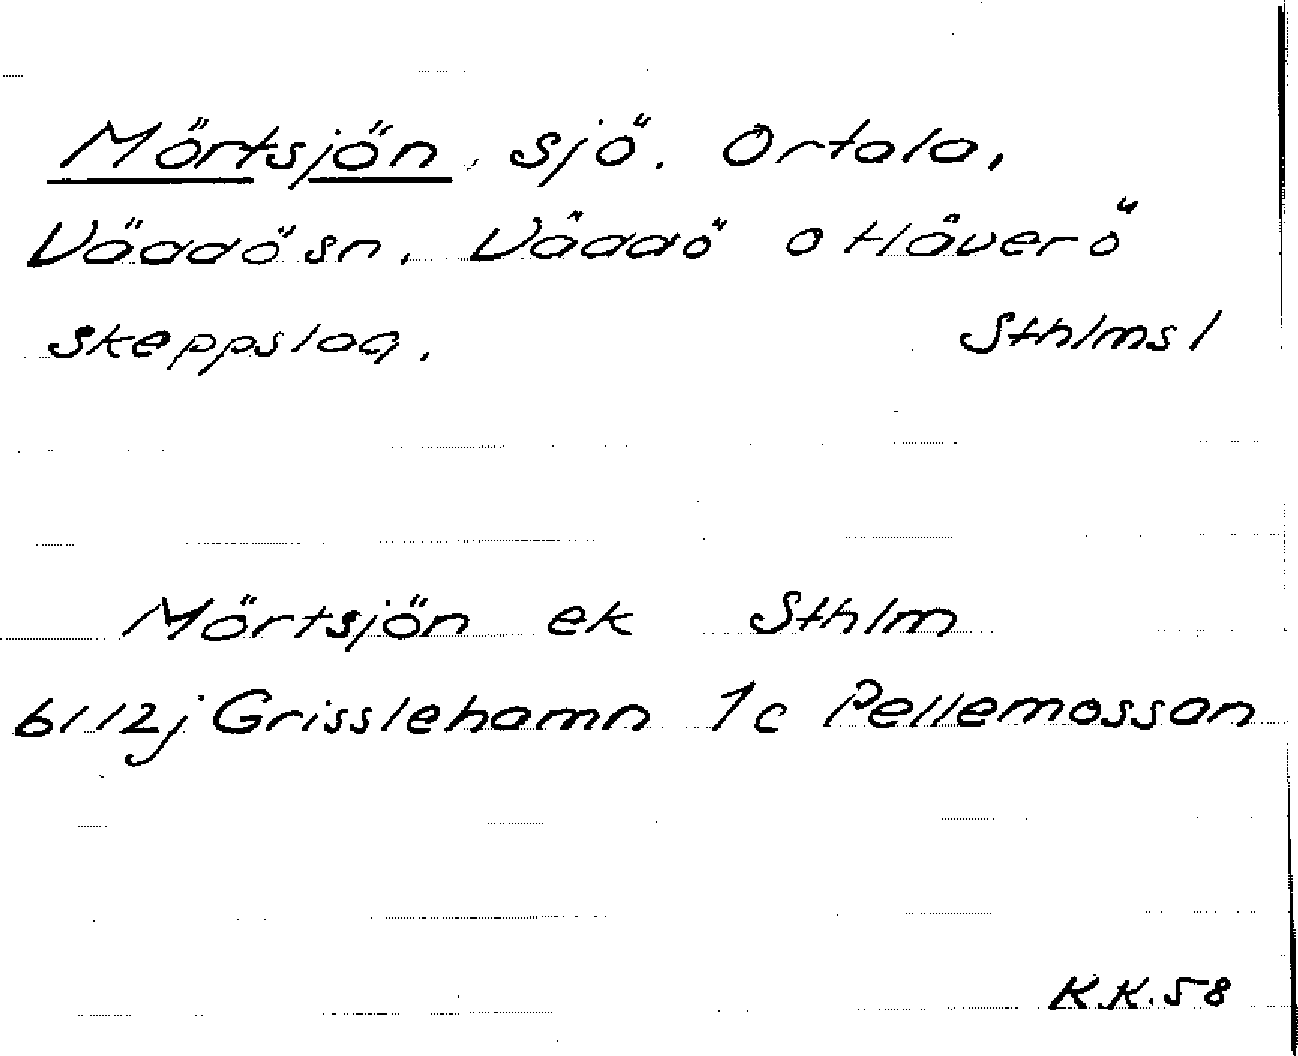 Mörtsjön, sjö. Ortala,
Väddö sn. Väddö o Häverö
skeppslag. Sthlms l
Mörtsjön ek Sthlm
6112j Grisslehamn 1c Pellemossan
K.K. 58